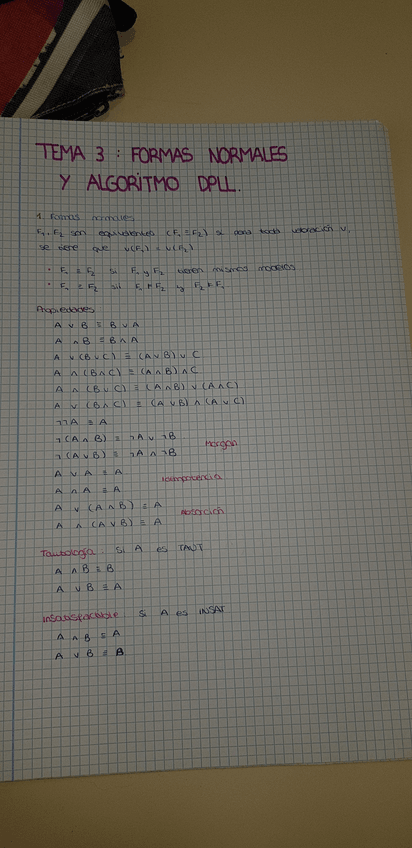 TEMA 3 : FORMAS NORMALES
Y ALGORITMO DPLL.
1. Formas normales
F₁, F₂ son equivalentes (F₁ ≡ F₂) si para toda valoración v,
se tiene que v(F₁) = v(F₂)
• F₁ ≡ F₂ si F₁ y F₂ tienen mismos modelos
• F₁ ≡ F₂ sii F₁ ⊨ F₂ y F₂ ⊨ F₁
Propiedades
A ∨ B ≡ B ∨ A
A ∧ B ≡ B ∧ A
A ∨ (B ∨ C) ≡ (A ∨ B) ∨ C
A ∧ (B ∧ C) ≡ (A ∧ B) ∧ C
A ∧ (B ∨ C) ≡ (A ∧ B) ∨ (A ∧ C)
A ∨ (B ∧ C) ≡ (A ∨ B) ∧ (A ∨ C)
¬¬A ≡ A
¬(A ∧ B) ≡ ¬A ∨ ¬B
¬(A ∨ B) ≡ ¬A ∧ ¬B Morgan
A ∨ A ≡ A
A ∧ A ≡ A Idempotencia
A ∨ (A ∧ B) ≡ A
A ∧ (A ∨ B) ≡ A Absorción
Tautología Si A es TAUT
A ∧ B ≡ B
A ∨ B ≡ A
Insatisfactible Si A es INSAT
A ∧ B ≡ A
A ∨ B ≡ B